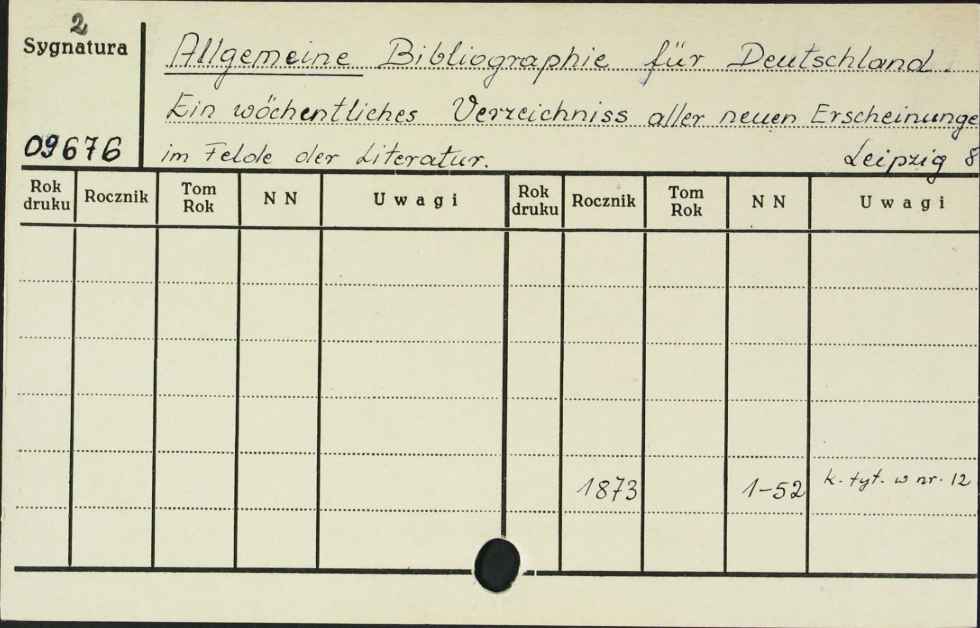 2
Sygnatura
Allgemeine Bibliographie für Deutschland.
Ein wöchentliches Verzeichniss aller neuen Erscheinunge
09676
im Felde der Literatur. Leipzig 8
Rok druku Rocznik Tom Rok N N Uwagi Rok druku Rocznik Tom Rok N N Uwagi
1873 1-52 k. tyt. w nr. 12